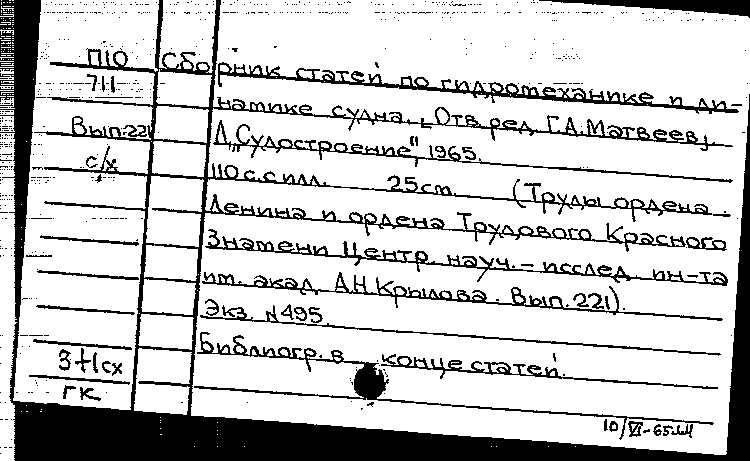 П10 Сборник статей по гидромеханике и ди-
711
намике судна. [Отв. ред. Г.А. Матвеев].
Вып. 221
Л., "Судостроение", 1965.
с/х
110 с. с илл. 25 см. (Труды ордена
Ленина и ордена Трудового Красного
Знамени Центр. науч. - исслед. ин-та
им. акад. А.Н. Крылова. Вып. 221).
Экз. N495.
Библиогр. в конце статей.
3+1сх
ГК
10/VI-65